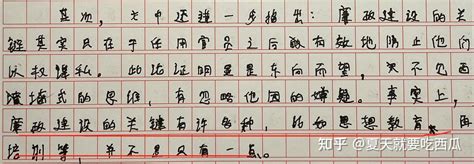 其次，文中还进一步指出：廉政建设的关
键其实只在于任用官员之后敢有效地防止他们
以权谋私。此论证明显是东向而望，不见西
墙式的思维，有忽略他因的嫌疑。事实上，
廉政建设的关键有许多种，比如思想教育、再
培训等，并不是只有一点。
知乎 @夏天就要吃西瓜